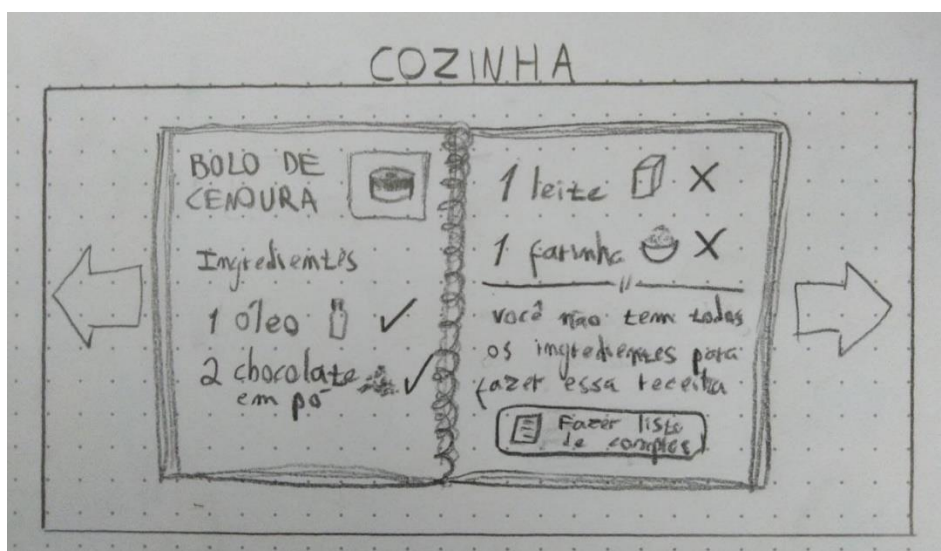 COZINHA
BOLO DE
CENOURA
Ingredientes
1 óleo
2 chocolate
em pó
1 leite
1 farinha
você não tem todos
os ingredientes para
fazer essa receita
Fazer lista
de compras